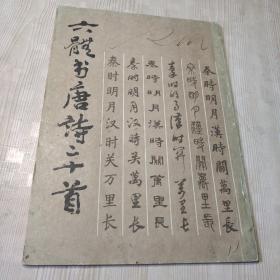 六體书唐詩二十首
秦時明月漢時關萬里長
秦時明月漢時關萬里長
秦時明月漢時關萬里長
秦時明月漢時關萬里長
秦时明月汉时关萬里长
秦时明月汉时关万里长